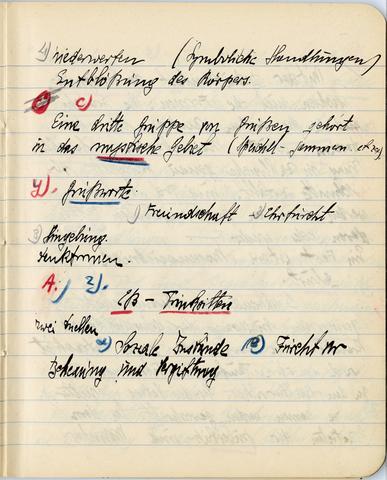 4) niederwerfen (Symbolische Handlungen)
Entblößung des Körpers.
c)
Eine dritte Gruppe von Grüßen gehört
in das mystische Gebet (
y). Grußworte.
1) Freundschaft 2) Ehrfurcht
3) Hingebung.
A. 2).
Eß - Trinksitten
zwei Quellen
α) Soziale Zustände β) Furcht vor
und Vergiftung